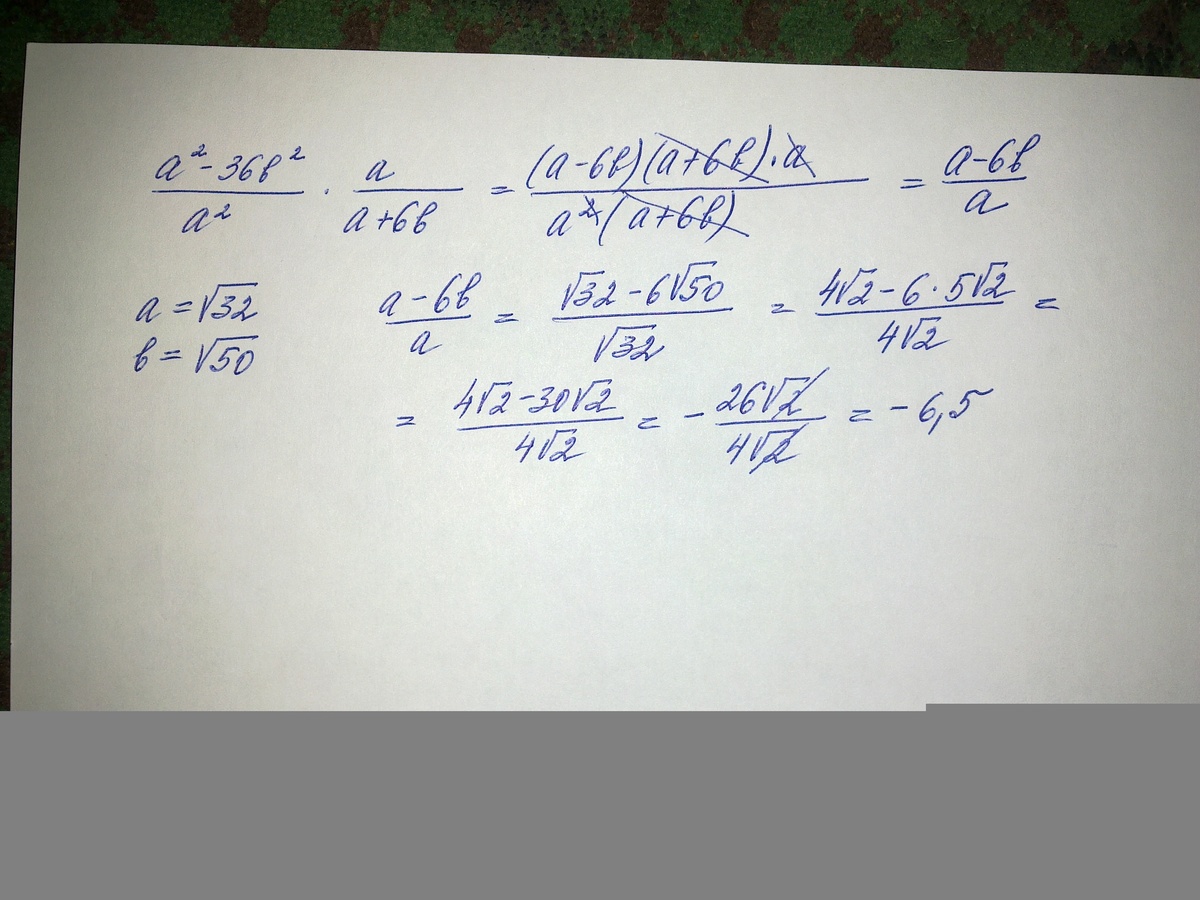 (a² - 36b²)/a² · a/(a+6b) = ((a-6b)(a+6b)·a)/(a²(a+6b)) = (a-6b)/a
a = √32 (a-6b)/a = (√32 - 6√50)/√32 = (4√2 - 6·5√2)/(4√2) =
b = √50
= (4√2 - 30√2)/(4√2) = - (26√2)/(4√2) = -6,5